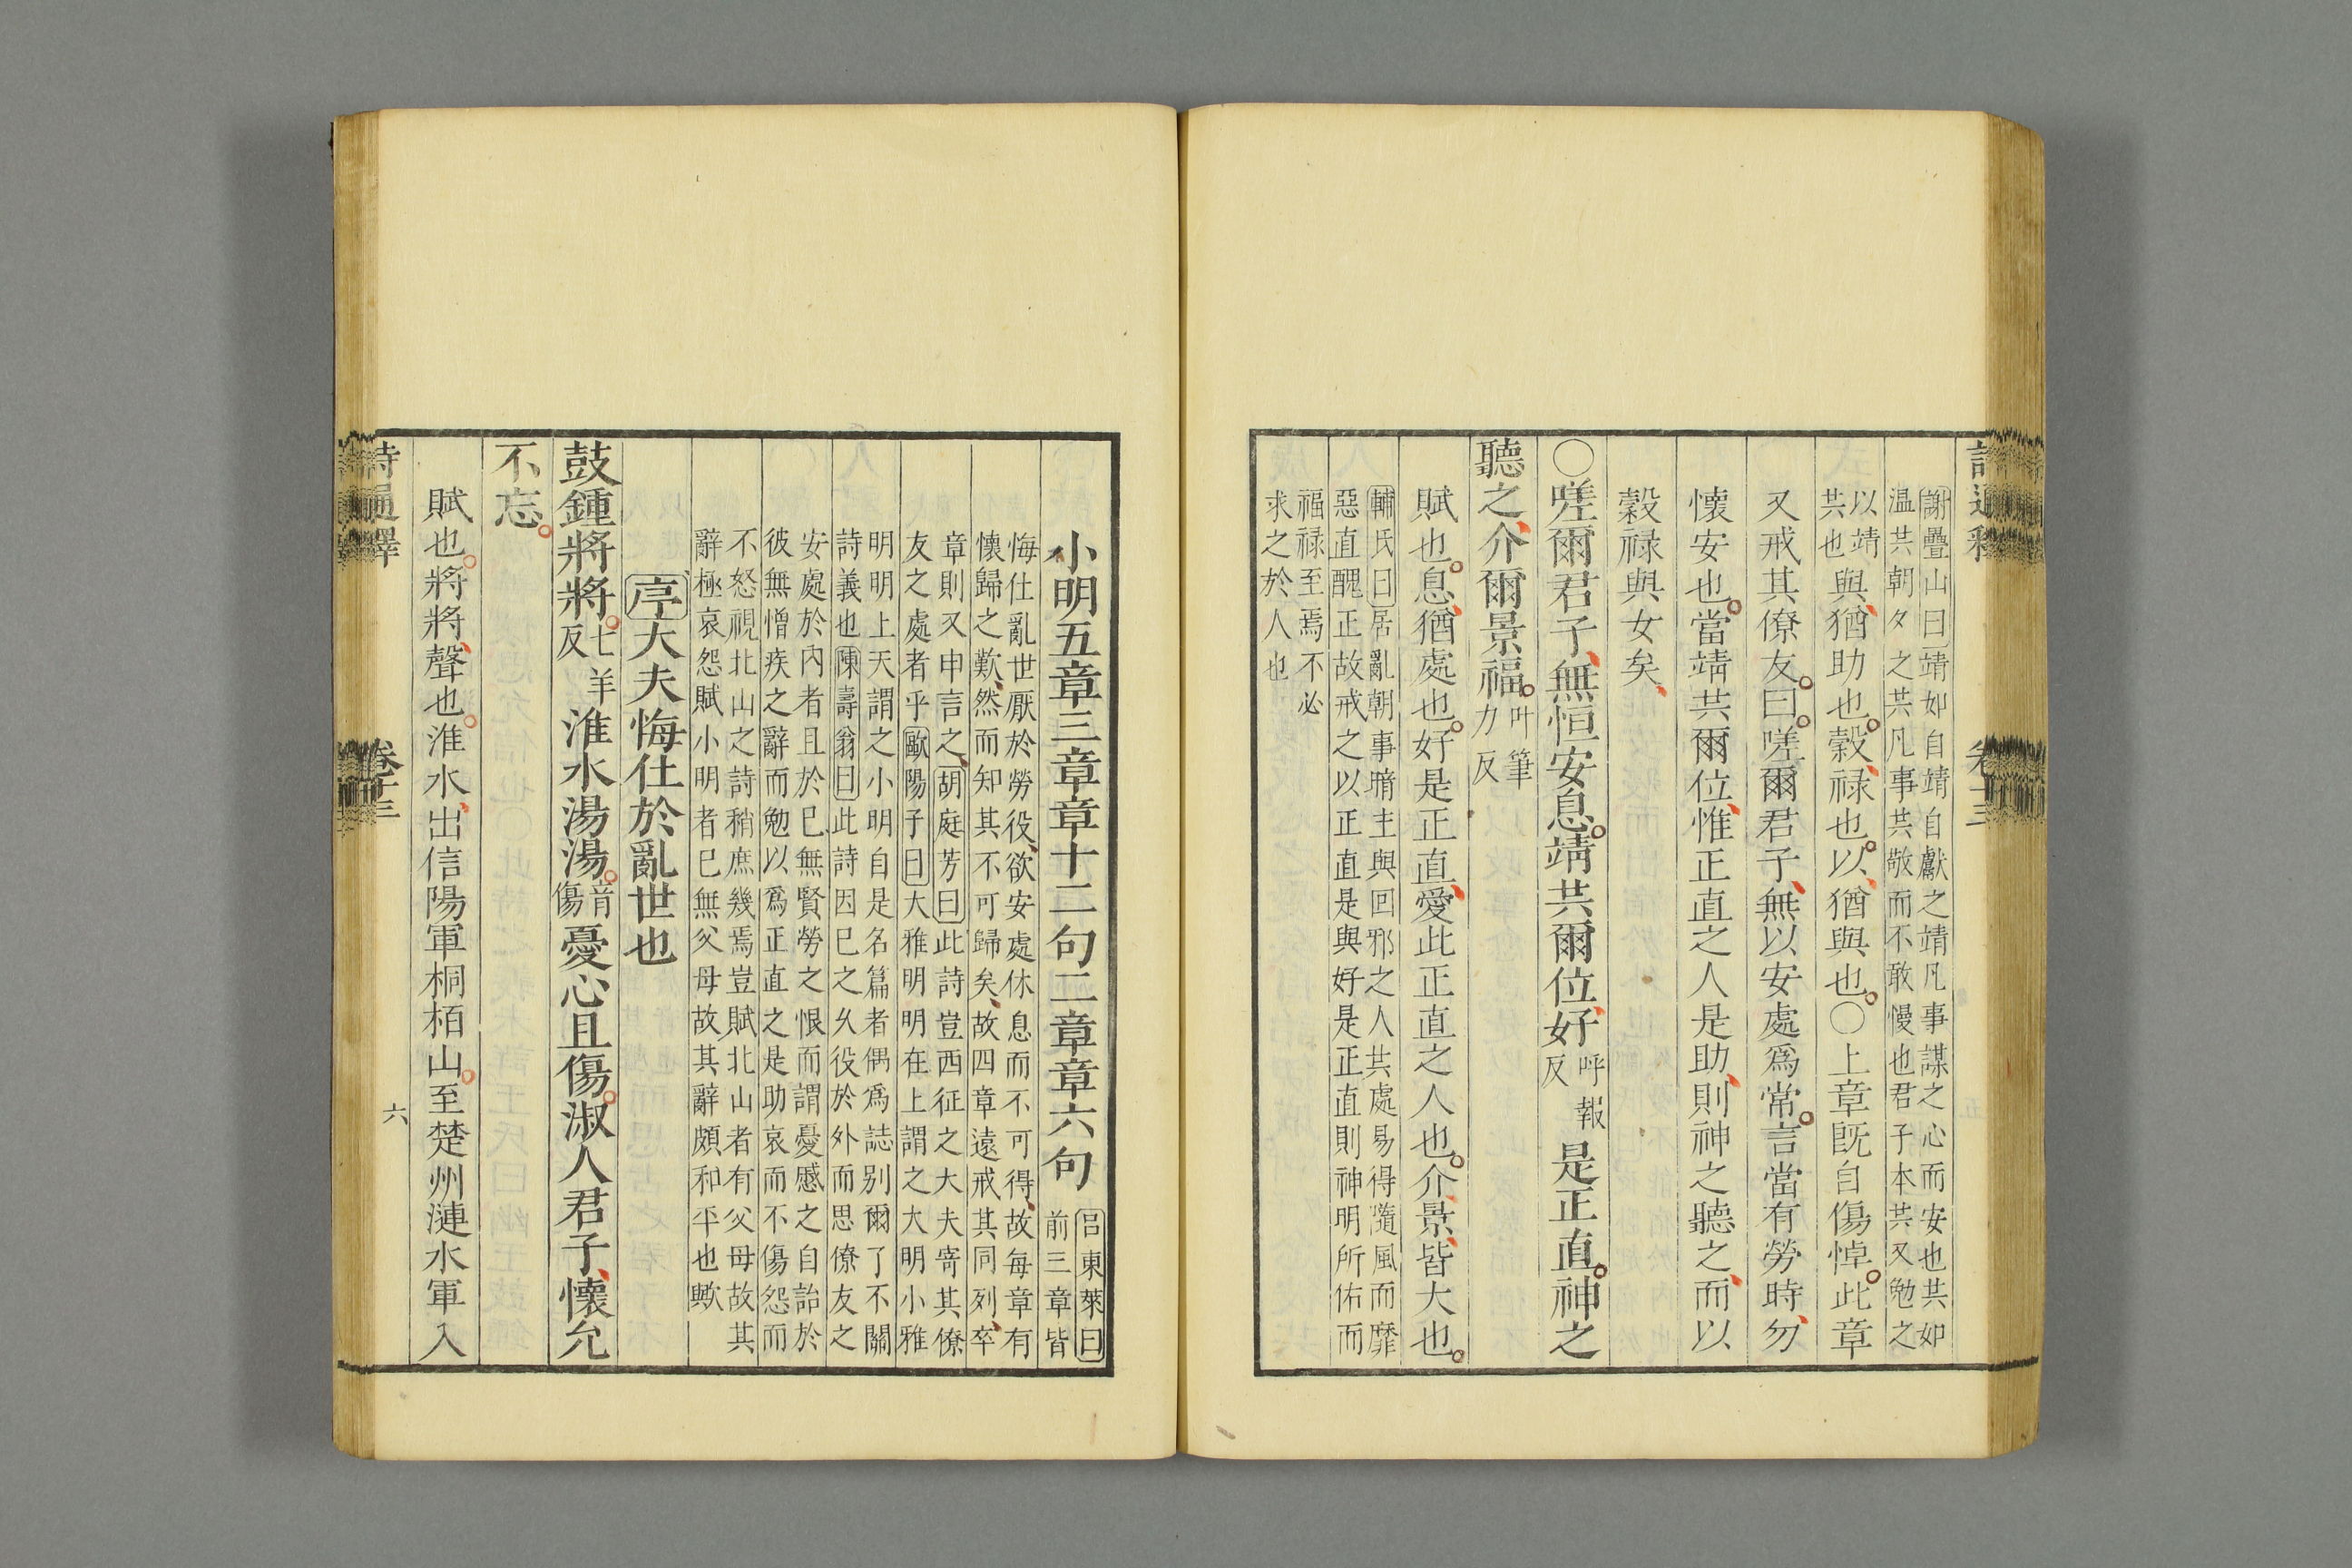 謝疊山曰靖如自靖自獻之靖凡事謀之心而安也共如
温共朝夕之共凡事共敬而不敢慢也君子本共又勉之
以靖
共也
與猶助也穀禄也以猶與也○上章既自傷悼此章
又戒其僚友曰嗟爾君子無以安處爲常言當有勞時勿
懷安也當靖共爾位惟正直之人是助則神之聽之而以
穀禄與女矣
○嗟爾君子無恒安息靖共爾位好呼報反是正直神之
聽之介爾景福叶筆力反
賦也息猶處也好是正直愛此正直之人也介景皆大也
輔氏曰居亂朝事暗主與回邪之人共處易得隨風而靡
惡直醜正故戒之以正直是與好是正直則神明所佑而
福禄至焉不必
求之於人也
小明五章三章章十二句二章章六句
吕東萊曰
前三章皆
悔仕亂世厭於勞役欲安處休息而不可得故每章有
懷歸之歎然而知其不可歸矣故四章遠戒其同列卒
章則又申言之胡庭芳曰此詩豈西征之大夫寄其僚
友之處者乎歐陽子曰大雅明明在上謂之大明小雅
明明上天謂之小明自是名篇者偶爲誌别爾了不關
詩義也陳壽翁曰此詩因已之久役於外而思僚友之
安處於内者且於已無賢勞之恨而謂憂慼之自詒於
彼無憎疾之辭而勉以爲正直之是助哀而不傷怨而
不怒視北山之詩稍庶幾焉豈賦北山者有父母故其
辭極哀怨賦小明者已無父母故其辭頗和平也歟
序大夫悔仕於亂世也
鼓鍾將將七羊反淮水湯湯音傷憂心且傷淑人君子懷允
不忘
賦也將將聲也淮水出信陽軍桐栢山至楚州漣水軍入
詩通釋
卷十三
六